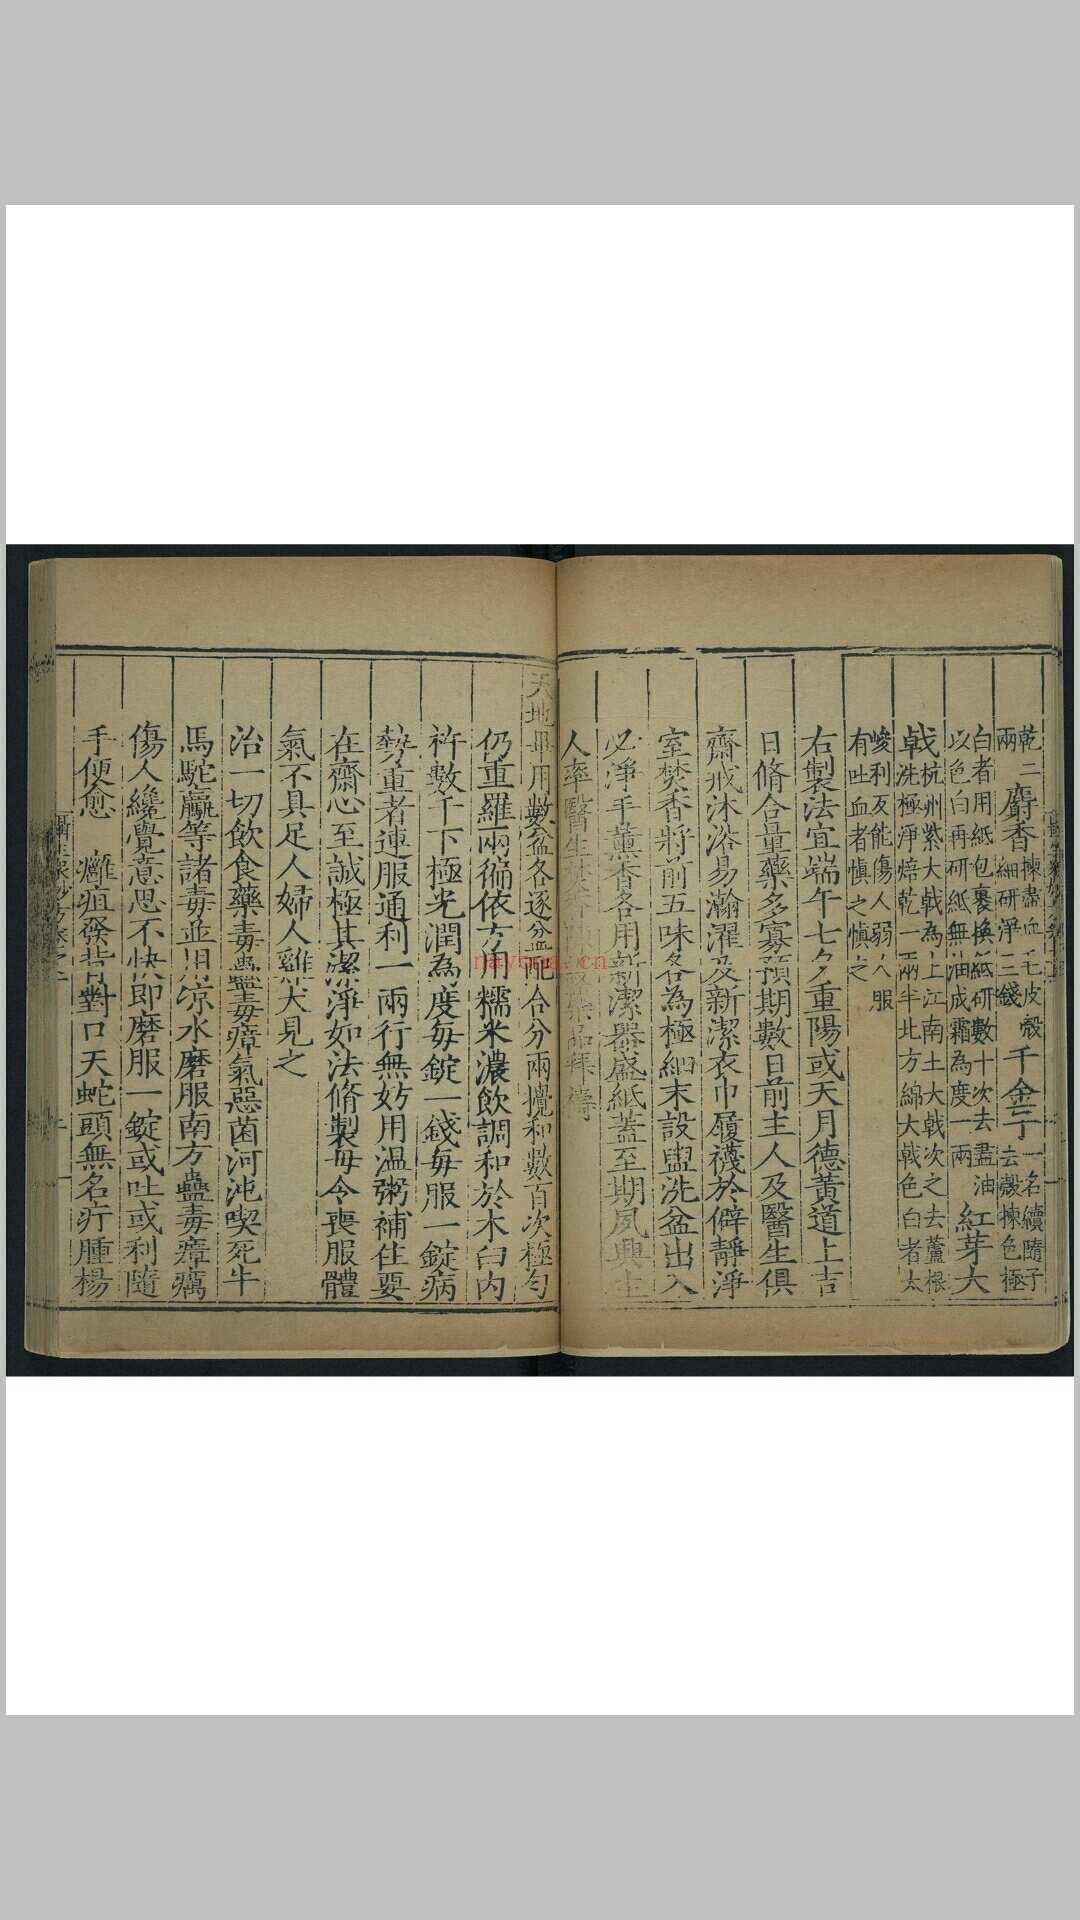 乾二
兩
麝香
揀盡血毛皮殼
細研淨三錢
千金子
一名續隨子
去殼揀色極
白者用紙包裹換紙研數十次去盡油
以色白再研紙無油成霜為度一兩
紅芽大
戟
杭州紫大戟為上江南土大戟次之去蘆根
洗極淨焙乾一兩半北方綿大戟色白者太
峻利反能傷人弱人服
有吐血者慎之慎之
右製法宜端午七夕重陽或天月德黃道上吉
日脩合量藥多寡預期數日前主人及醫生俱
齋戒沐浴易瀚濯及新潔衣巾履襪於僻靜淨
室焚香將前五味各為極細末設盥洗盆出入
必淨手薰香各用新潔器盛紙蓋至期夙興主
人率醫生
藥品拜禱
天地畢用數盆各逐分
配合分兩攪和數百次極勻
仍重羅兩徧依方用糯米濃飲調和於木臼內
杵數千下極光潤為度每錠一錢每服一錠病
勢重者連服通利一兩行無妨用溫粥補住要
在齋心至誠極其潔淨如法脩製毋令喪服體
氣不具足人婦人雞犬見之
治一切飲食藥毒蠱毒瘴氣惡菌河沌喫死牛
馬駝驘等諸毒並用涼水磨服南方蠱毒瘴癘
傷人纔覺意思不快即磨服一錠或吐或利隨
手便愈
癰疽發背對口天蛇頭無名疔腫楊
naysoa.cn